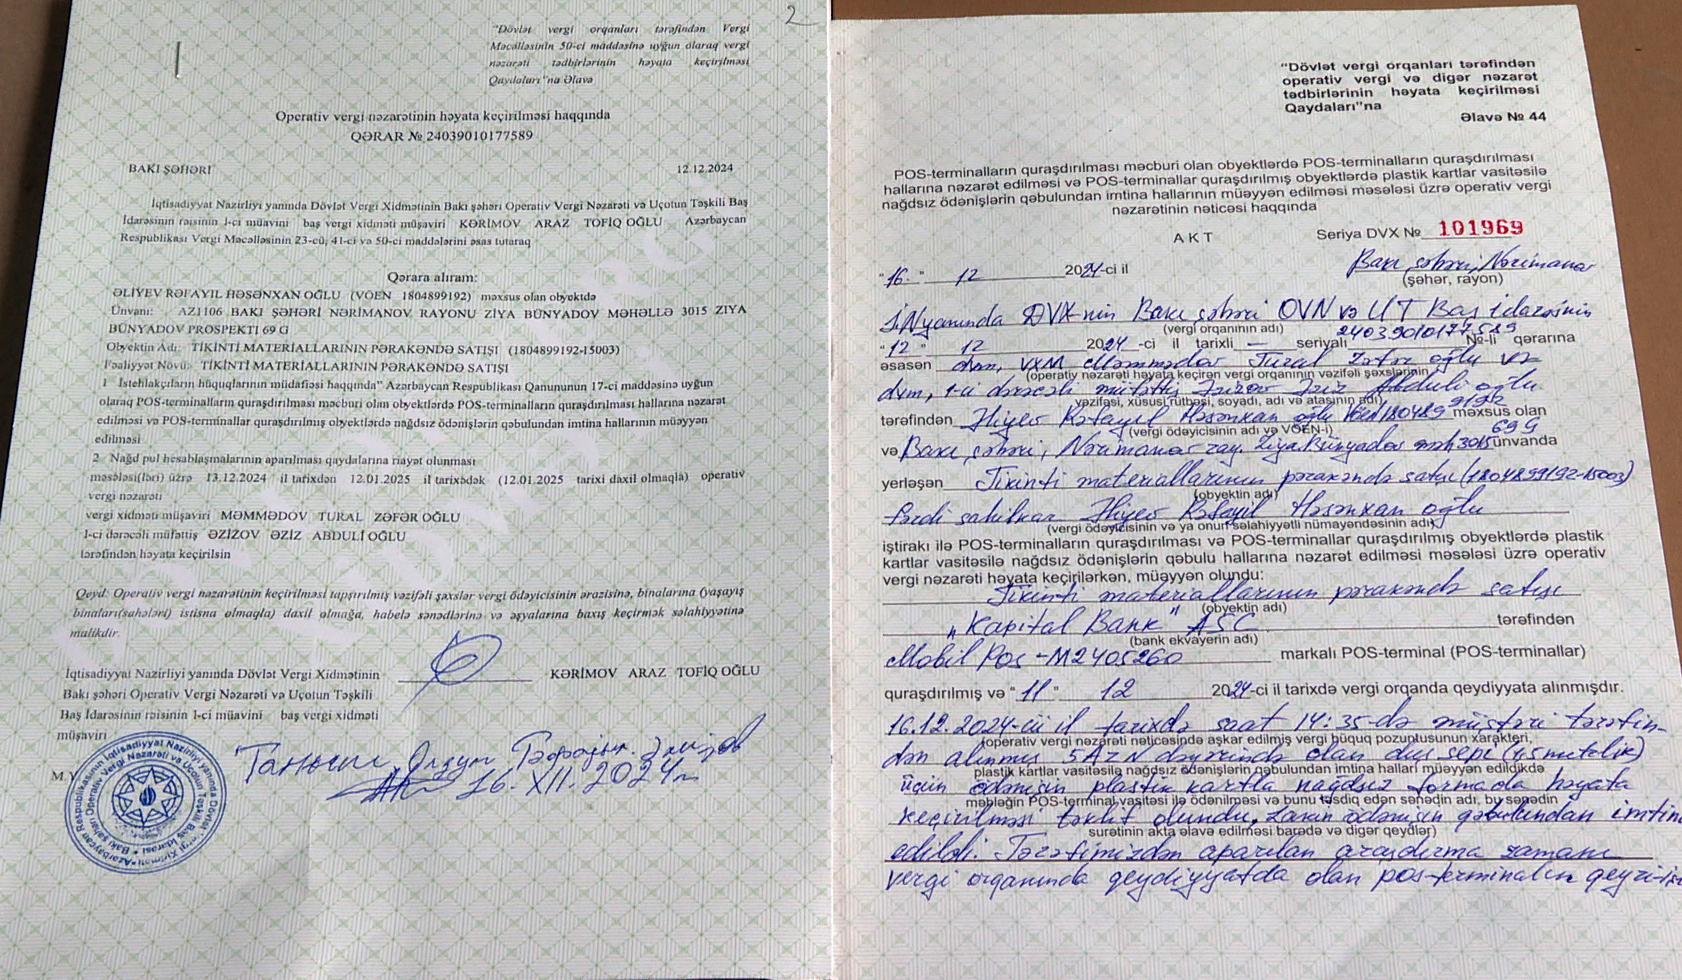 2
"Dövlət vergi orqanları tərəfindən Vergi
Məcəlləsinin 50-ci maddəsinə uyğun olaraq vergi
nəzarəti tədbirlərinin həyata keçirilməsi
Qaydaları"na Əlavə
Operativ vergi nəzarətinin həyata keçirilməsi haqqında
QƏRAR № 24039010177589
BAKI ŞƏHƏRİ 12.12.2024
İqtisadiyyat Nazirliyi yanında Dövlət Vergi Xidmətinin Bakı şəhəri Operativ Vergi Nəzarəti və Uçotun Təşkili Baş
İdarəsinin rəisinin 1-ci müavini baş vergi xidməti müşaviri KƏRİMOV ARAZ TOFİQ OĞLU Azərbaycan
Respublikası Vergi Məcəlləsinin 23-cü, 41-ci və 50-ci maddələrini əsas tutaraq
Qərara alıram:
ƏLİYEV RƏFAYIL HƏSƏNXAN OĞLU (VÖEN 1804899192) məxsus olan obyektdə
Ünvanı: AZ1106 BAKI ŞƏHƏRİ NƏRİMANOV RAYONU ZİYA BÜNYADOV MƏHƏLLƏ 3015 ZIYA
BÜNYADOV PROSPEKTI 69 G
Obyektin Adı: TİKİNTİ MATERİALLARININ PƏRAKƏNDƏ SATIŞI (1804899192-15003)
Fəaliyyət Növü: TİKİNTİ MATERİALLARININ PƏRAKƏNDƏ SATIŞI
1 İstehlakçıların hüquqlarının müdafiəsi haqqında" Azərbaycan Respublikası Qanununun 17-ci maddəsinə uyğun
olaraq POS-terminalların quraşdırılması məcburi olan obyektlərdə POS-terminalların quraşdırılması hallarına nəzarət
edilməsi və POS-terminallar quraşdırılmış obyektlərdə nağdsız ödənişlərin qəbulundan imtina hallarının müəyyən
edilməsi
2 Nağd pul hesablaşmalarının aparılması qaydalarına riayət olunması
məsələsi(ləri) üzrə 13.12.2024 il tarixdən 12.01.2025 il tarixədək (12.01.2025 tarixi daxil olmaqla) operativ
vergi nəzarəti
vergi xidməti müşaviri MƏMMƏDOV TURAL ZƏFƏR OĞLU
1-ci dərəcəli müfəttiş ƏZİZOV ƏZİZ ABDULİ OĞLU
tərəfindən həyata keçirilsin
Qeyd: Operativ vergi nəzarətinin keçirilməsi tapşırılmış vəzifəli şəxslər vergi ödəyicisinin ərazisinə, binalarına (yaşayış
binaları(sahələri) istisna olmaqla) daxil olmağa, habelə sənədlərinə və əşyalarına baxış keçirmək səlahiyyətinə
malikdir.
İqtisadiyyat Nazirliyi yanında Dövlət Vergi Xidmətinin
Bakı şəhəri Operativ Vergi Nəzarəti və Uçotun Təşkili
Baş İdarəsinin rəisinin 1-ci müavini baş vergi xidməti
müşaviri
KƏRİMOV ARAZ TOFİQ OĞLU
M.Y.
16.XII.2024
"Dövlət vergi orqanları tərəfindən
operativ vergi və digər nəzarət
tədbirlərinin həyata keçirilməsi
Qaydaları"na
Əlavə № 44
POS-terminalların quraşdırılması məcburi olan obyektlərdə POS-terminalların quraşdırılması
hallarına nəzarət edilməsi və POS-terminallar quraşdırılmış obyektlərdə plastik kartlar vasitəsilə
nağdsız ödənişlərin qəbulundan imtina hallarının müəyyən edilməsi məsələsi üzrə operativ vergi
nəzarətinin nəticəsi haqqında
AKT Seriya DVX № 101969
"16" 12 2024-ci il Bakı şəhəri, Nərimanov
(şəhər, rayon)
İ.N yanında DVX-nin Bakı şəhəri OVN və UT Baş idarəsinin
(vergi orqanının adı) 24039010177589
"12" 12 2024-ci il tarixli — seriyalı №-li qərarına
əsasən dvm, VXM Məmmədov Tural Zəfər oğlu və
(operativ nəzarəti həyata keçirən vergi orqanının vəzifəli şəxslərinin
dvm, 1-ci dərəcəli müfəttiş Əzizov Əziz Abduli oğlu
vəzifəsi, xüsusi rütbəsi, soyadı, adı və atasının adı)
tərəfindən Əliyev Rəfayıl Həsənxan oğlu VÖEN 1804899192 məxsus olan
(vergi ödəyicisinin adı və VÖEN-i)
və Bakı şəhəri, Nərimanov ray. Ziya Bünyadov məh 3015 69G ünvanda
yerləşən Tikinti materiallarının pərakəndə satışı (1804899192-15003)
(obyektin adı)
fərdi sahibkar Əliyev Rəfayıl Həsənxan oğlu
(vergi ödəyicisinin və ya onun səlahiyyətli nümayəndəsinin adı)
iştirakı ilə POS-terminalların quraşdırılması və POS-terminallar quraşdırılmış obyektlərdə plastik
kartlar vasitəsilə nağdsız ödənişlərin qəbulu hallarına nəzarət edilməsi məsələsi üzrə operativ
vergi nəzarəti həyata keçirilərkən, müəyyən olundu:
Tikinti materiallarının pərakəndə satışı
(obyektin adı)
"Kapital Bank" ASC tərəfindən
(bank ekvayerin adı)
Mobil Pos - M2405260 markalı POS-terminal (POS-terminallar)
quraşdırılmış və "11" 12 2024-ci il tarixdə vergi orqanda qeydiyyata alınmışdır.
16.12.2024-cü il tarixdə saat 14:35-də müştəri tərəfin-
(operativ vergi nəzarəti nəticəsində aşkar edilmiş vergi hüquq pozuntusunun xarakteri,
dən alınmış 5 AZN dəyərində olan duş şepi (1,5 metrlik)
plastik kartlar vasitəsilə nağdsız ödənişlərin qəbulundan imtina halları müəyyən edildikdə
üçün ödənişin plastik kartla nağdsız formada həyata
məbləğin POS-terminal vasitəsi ilə ödənilməsi və bunu təsdiq edən sənədin adı, bu sənədin
keçirilməsi təklif olundu, lakin ödənişin qəbulundan imtina
surətinin akta əlavə edilməsi barədə və digər qeydlər)
edildi. Tərəfimizdən aparılan araşdırma zamanı
vergi orqanında qeydiyyatda olan pos-terminalın qeyri-